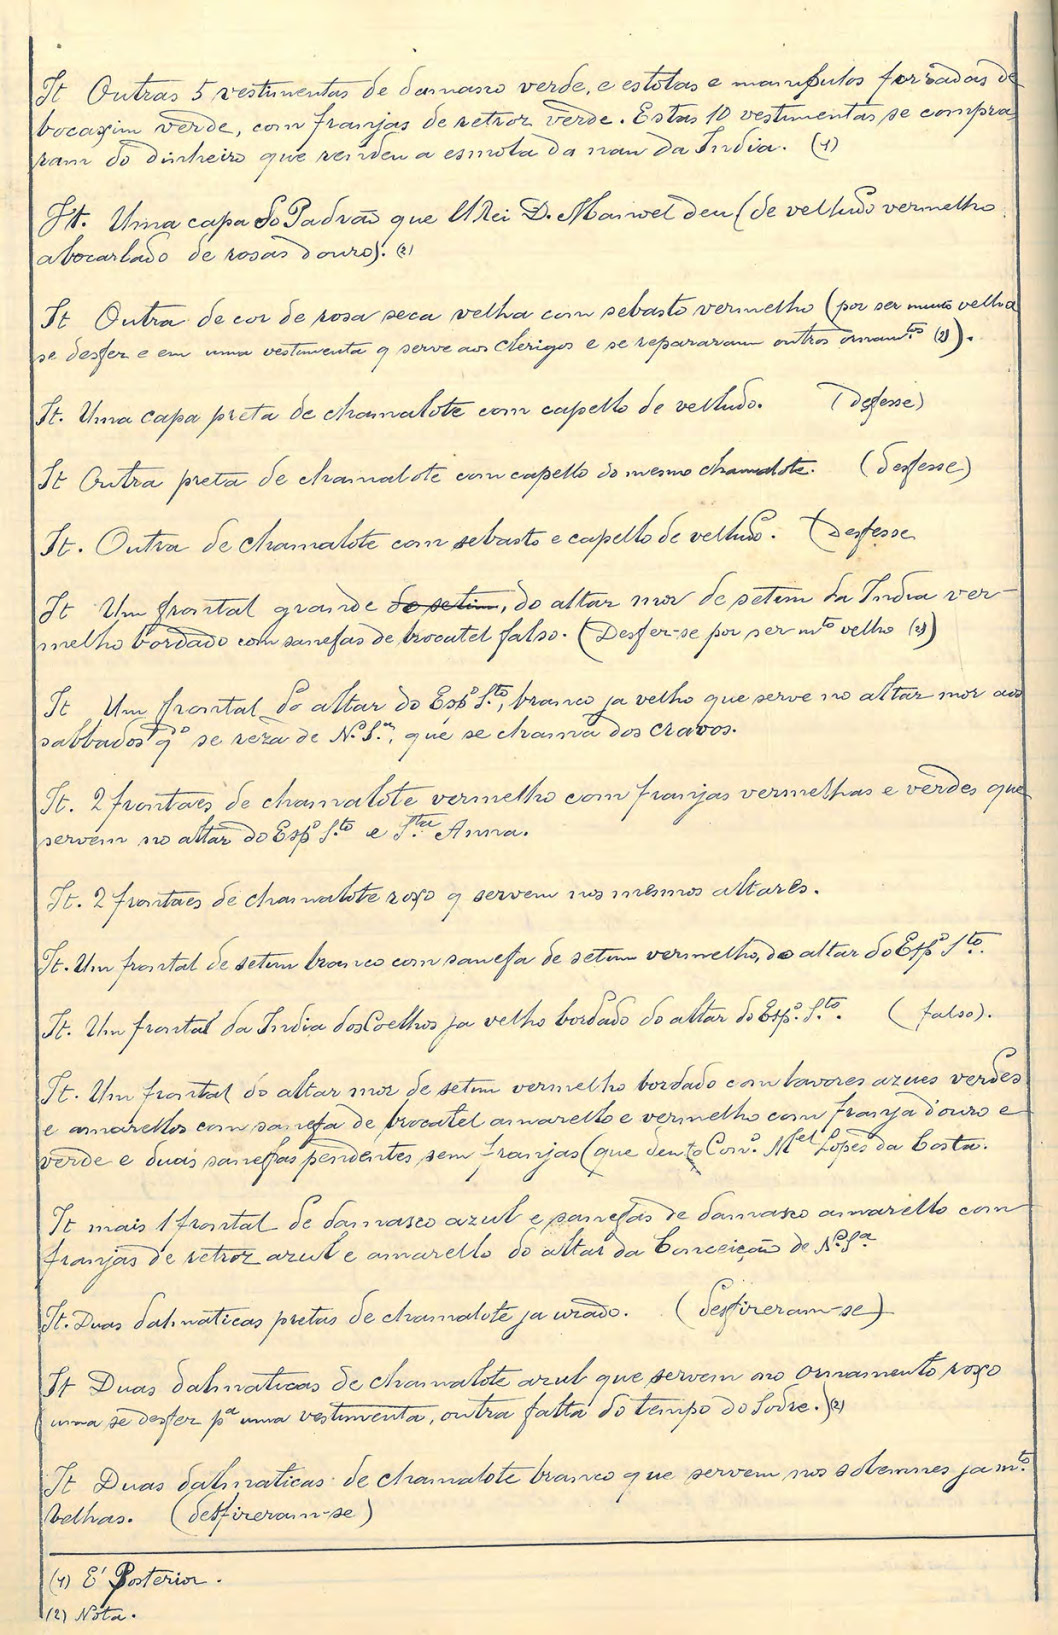 It Outras 5 vestimentas de damasco verde, e estolas e manipulos forradas de
bocaxim verde, com franjas de retroz verde. Estas 10 vestimentas se compra
ram do dinheiro que rendeu a esmola da nau da India. (1)
It. Uma capa do Padrão que El Rei D. Manoel deu (de velludo vermelho
abocarlado de rosas d ouro). (2)
It Outra de cor de rosa seca velha com sebasto vermelho (por ser muito velha
se desfez e em uma vestimenta q serve aos clerigos e se repararam outros ornam.tos (2)).
It. Uma capa preta de chamalote com capello de velludo. (desfesse)
It Outra preta de chamalote com capello do mesmo chamalote. (desfesse)
It. Outra de chamalote com sebasto e capello de velludo. (Desfesse
It Um frontal grande de setim, do altar mor de setim da India ver-
melho bordado com sanefas de brocatel falso. (Desfez-se por ser mto velho (2))
It Um frontal do altar do Espo Sto, branco ja velho que serve no altar mor aos
sabbados qdo se reza de N.a S.ra, que se chama dos cravos.
It. 2 frontaes de chamalote vermelho com franjas vermelhas e verdes que
servem no altar do Espo S.to e S.ta Anna.
It. 2 frontaes de chamalote roxo q servem nos mesmos altares.
It. Um frontal de setim branco com sanefa de setim vermelho, do altar do Espo Sto.
It. Um frontal da India dos Coelhos ja velho bordado do altar do Espo. S.to. (falso).
It. Um frontal do altar mor de setim vermelho bordado com lavores azues verdes
e amarellos com sanefa de brocatel amarello e vermelho com franja d'ouro e
verde e duas sanefas pendentes sem franjas (que deu o Con.o Mel Lopes da Costa.
It mais 1 frontal de damasco azul e sanefas de damasco amarello com
franjas de retroz azul e amarello do altar da Conceição de N.a S.a
It. Duas dalmaticas pretas de chamalote ja uzado. (desfizeram-se)
It Duas dalmaticas de chamalote azul que servem no ornamento roxo
(uma se desfez pa uma vestimenta, outra falta do tempo do Sodre.) (2)
It Duas dalmaticas de chamalote branco que servem nos solemnes ja m.to
velhas. (desfizeram-se)
(1) E' Posterior.
(2) Nota.